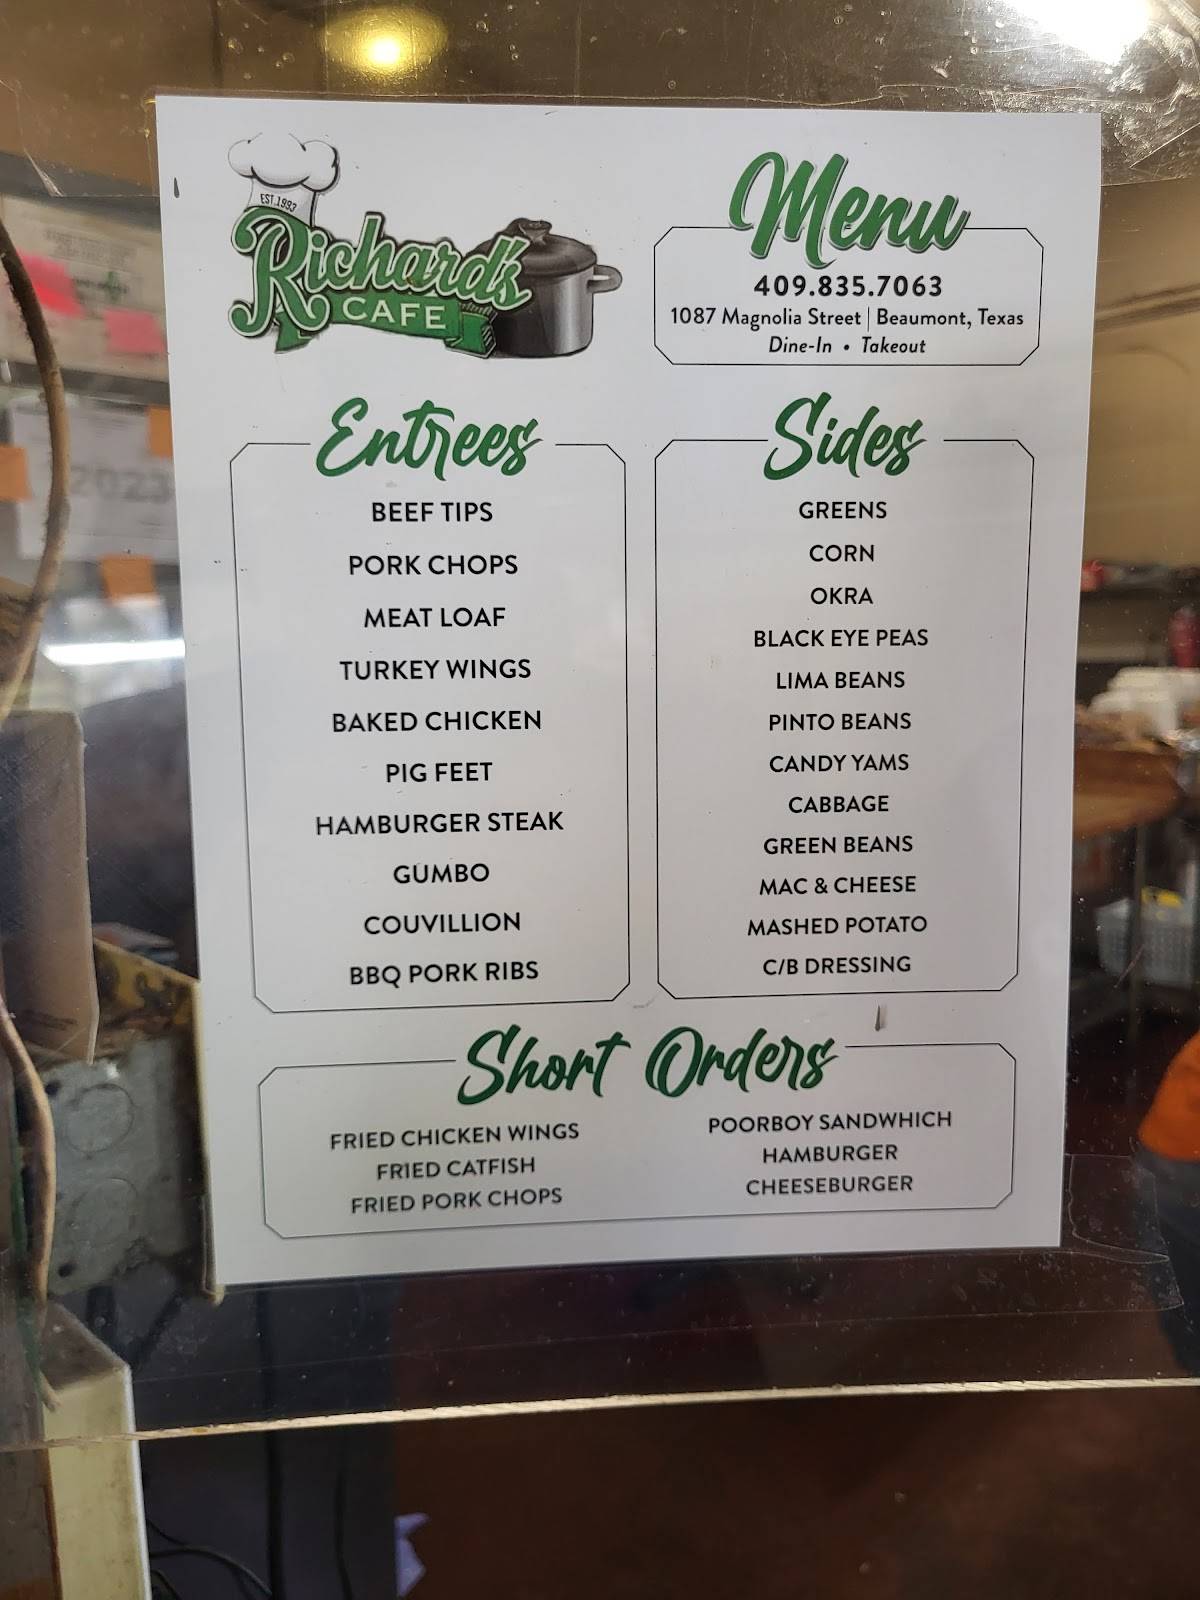 EST. 1993
Richard's
CAFE
Menu
409.835.7063
1087 Magnolia Street | Beaumont, Texas
Dine-In • Takeout
Entrees
BEEF TIPS
PORK CHOPS
MEAT LOAF
TURKEY WINGS
BAKED CHICKEN
PIG FEET
HAMBURGER STEAK
GUMBO
COUVILLION
BBQ PORK RIBS
Sides
GREENS
CORN
OKRA
BLACK EYE PEAS
LIMA BEANS
PINTO BEANS
CANDY YAMS
CABBAGE
GREEN BEANS
MAC & CHEESE
MASHED POTATO
C/B DRESSING
Short Orders
FRIED CHICKEN WINGS
FRIED CATFISH
FRIED PORK CHOPS
POORBOY SANDWHICH
HAMBURGER
CHEESEBURGER
2023